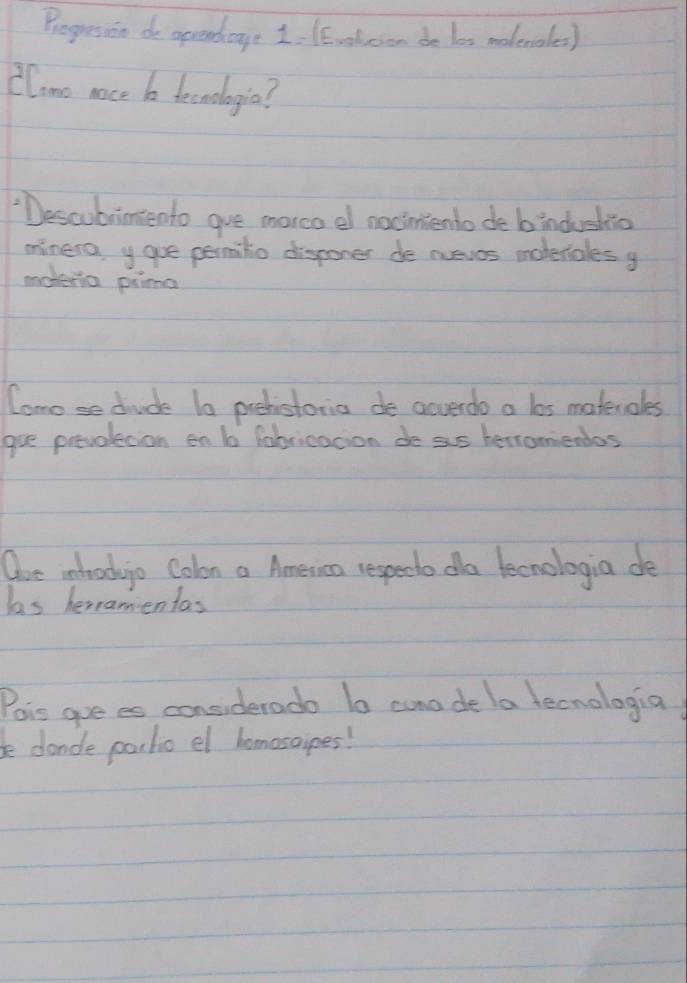 Progresión de aprendizaje 1.- (Evolucion de los materiales)
¿Como nace la tecnologia?
Descubrimiento que marco el nacimiento de la industria
minera, y que permitio disponer de nuevos materiales y
materia prima
Como se divide la prehistoria de acuerdo a los materiales
que prevalecian en la fabricacion de sus herramientas
Que introdujo Colon a America respecto a la tecnologia de
las herramientas
Pais que es considerado la cuna de la tecnologia y
de donde partio el homosaipes!